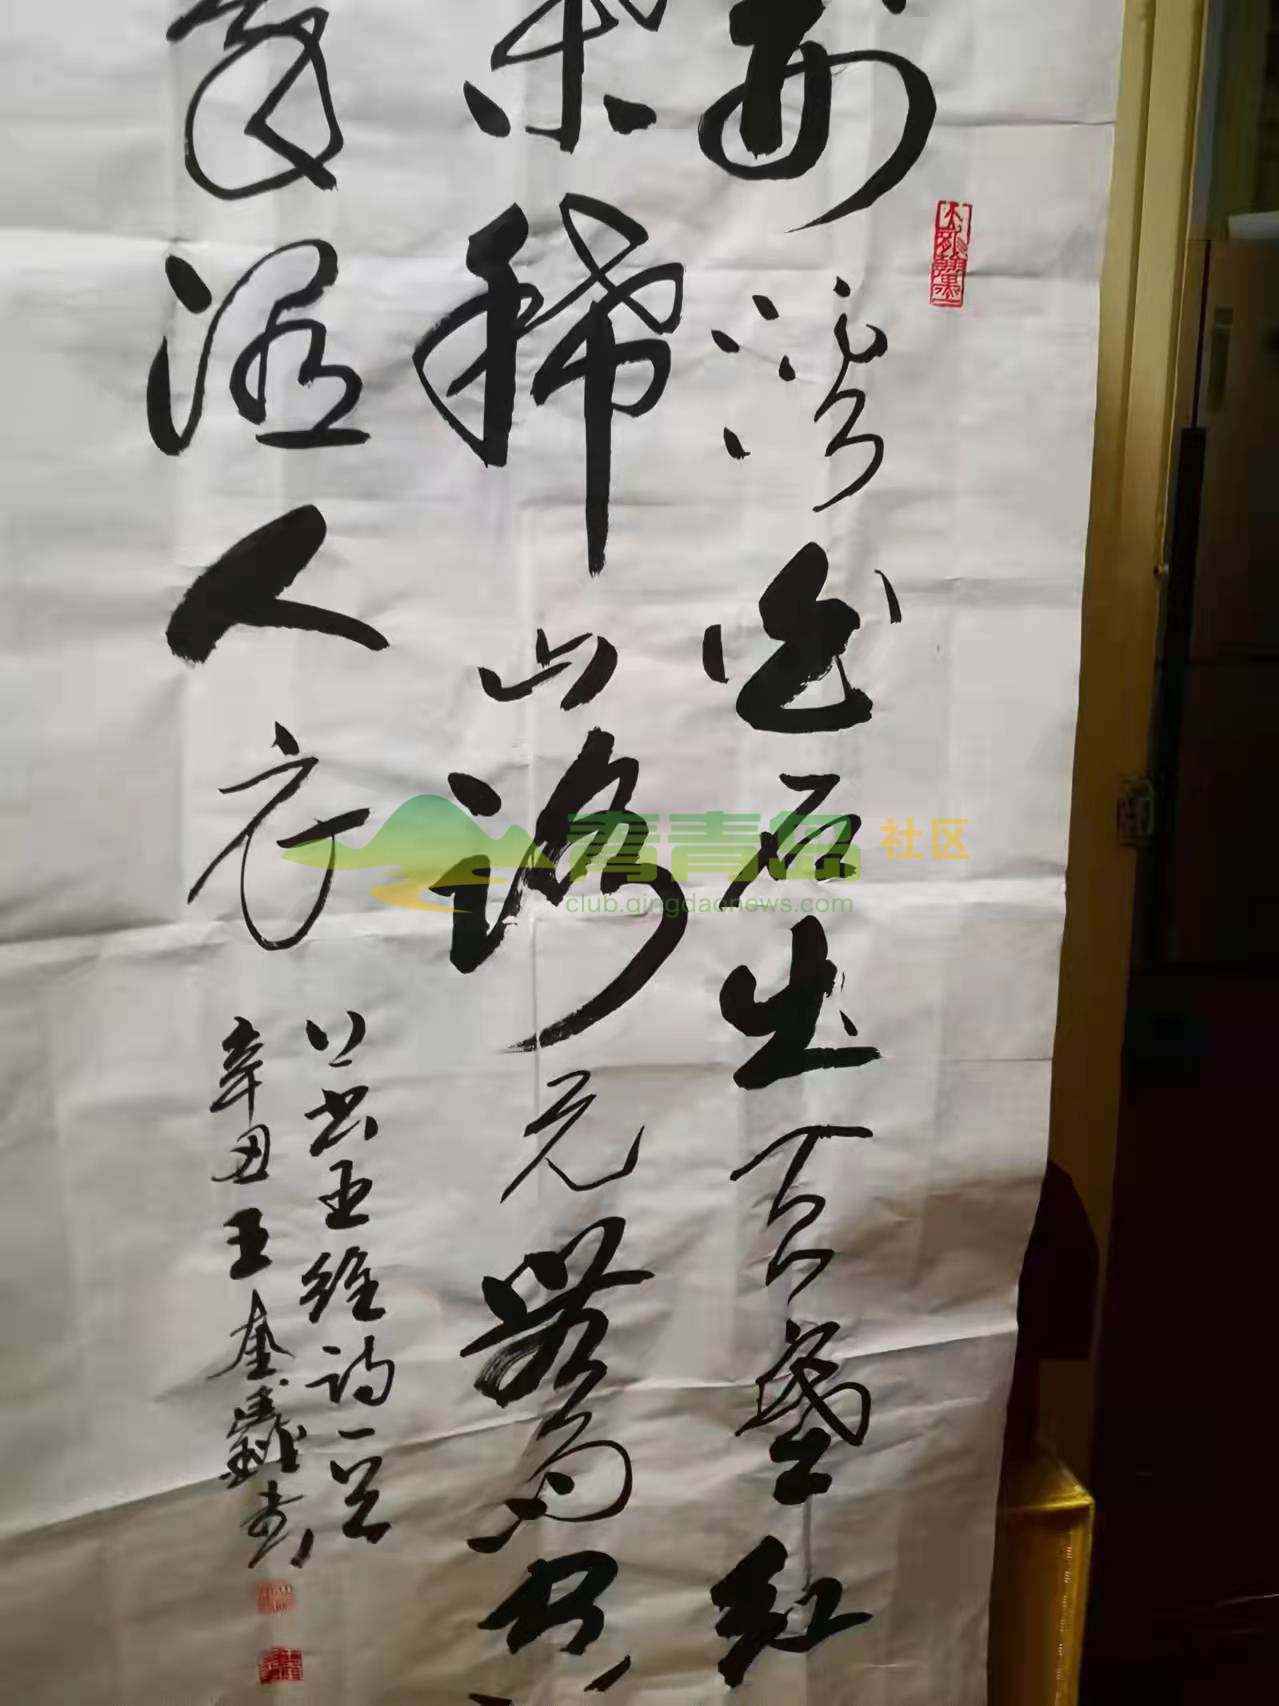 荆溪白石出天寒红
葉稀山路元無雨空
翠湿人衣
书王维诗一首
辛丑王奎书
青青岛社区
club.qingdaonews.com